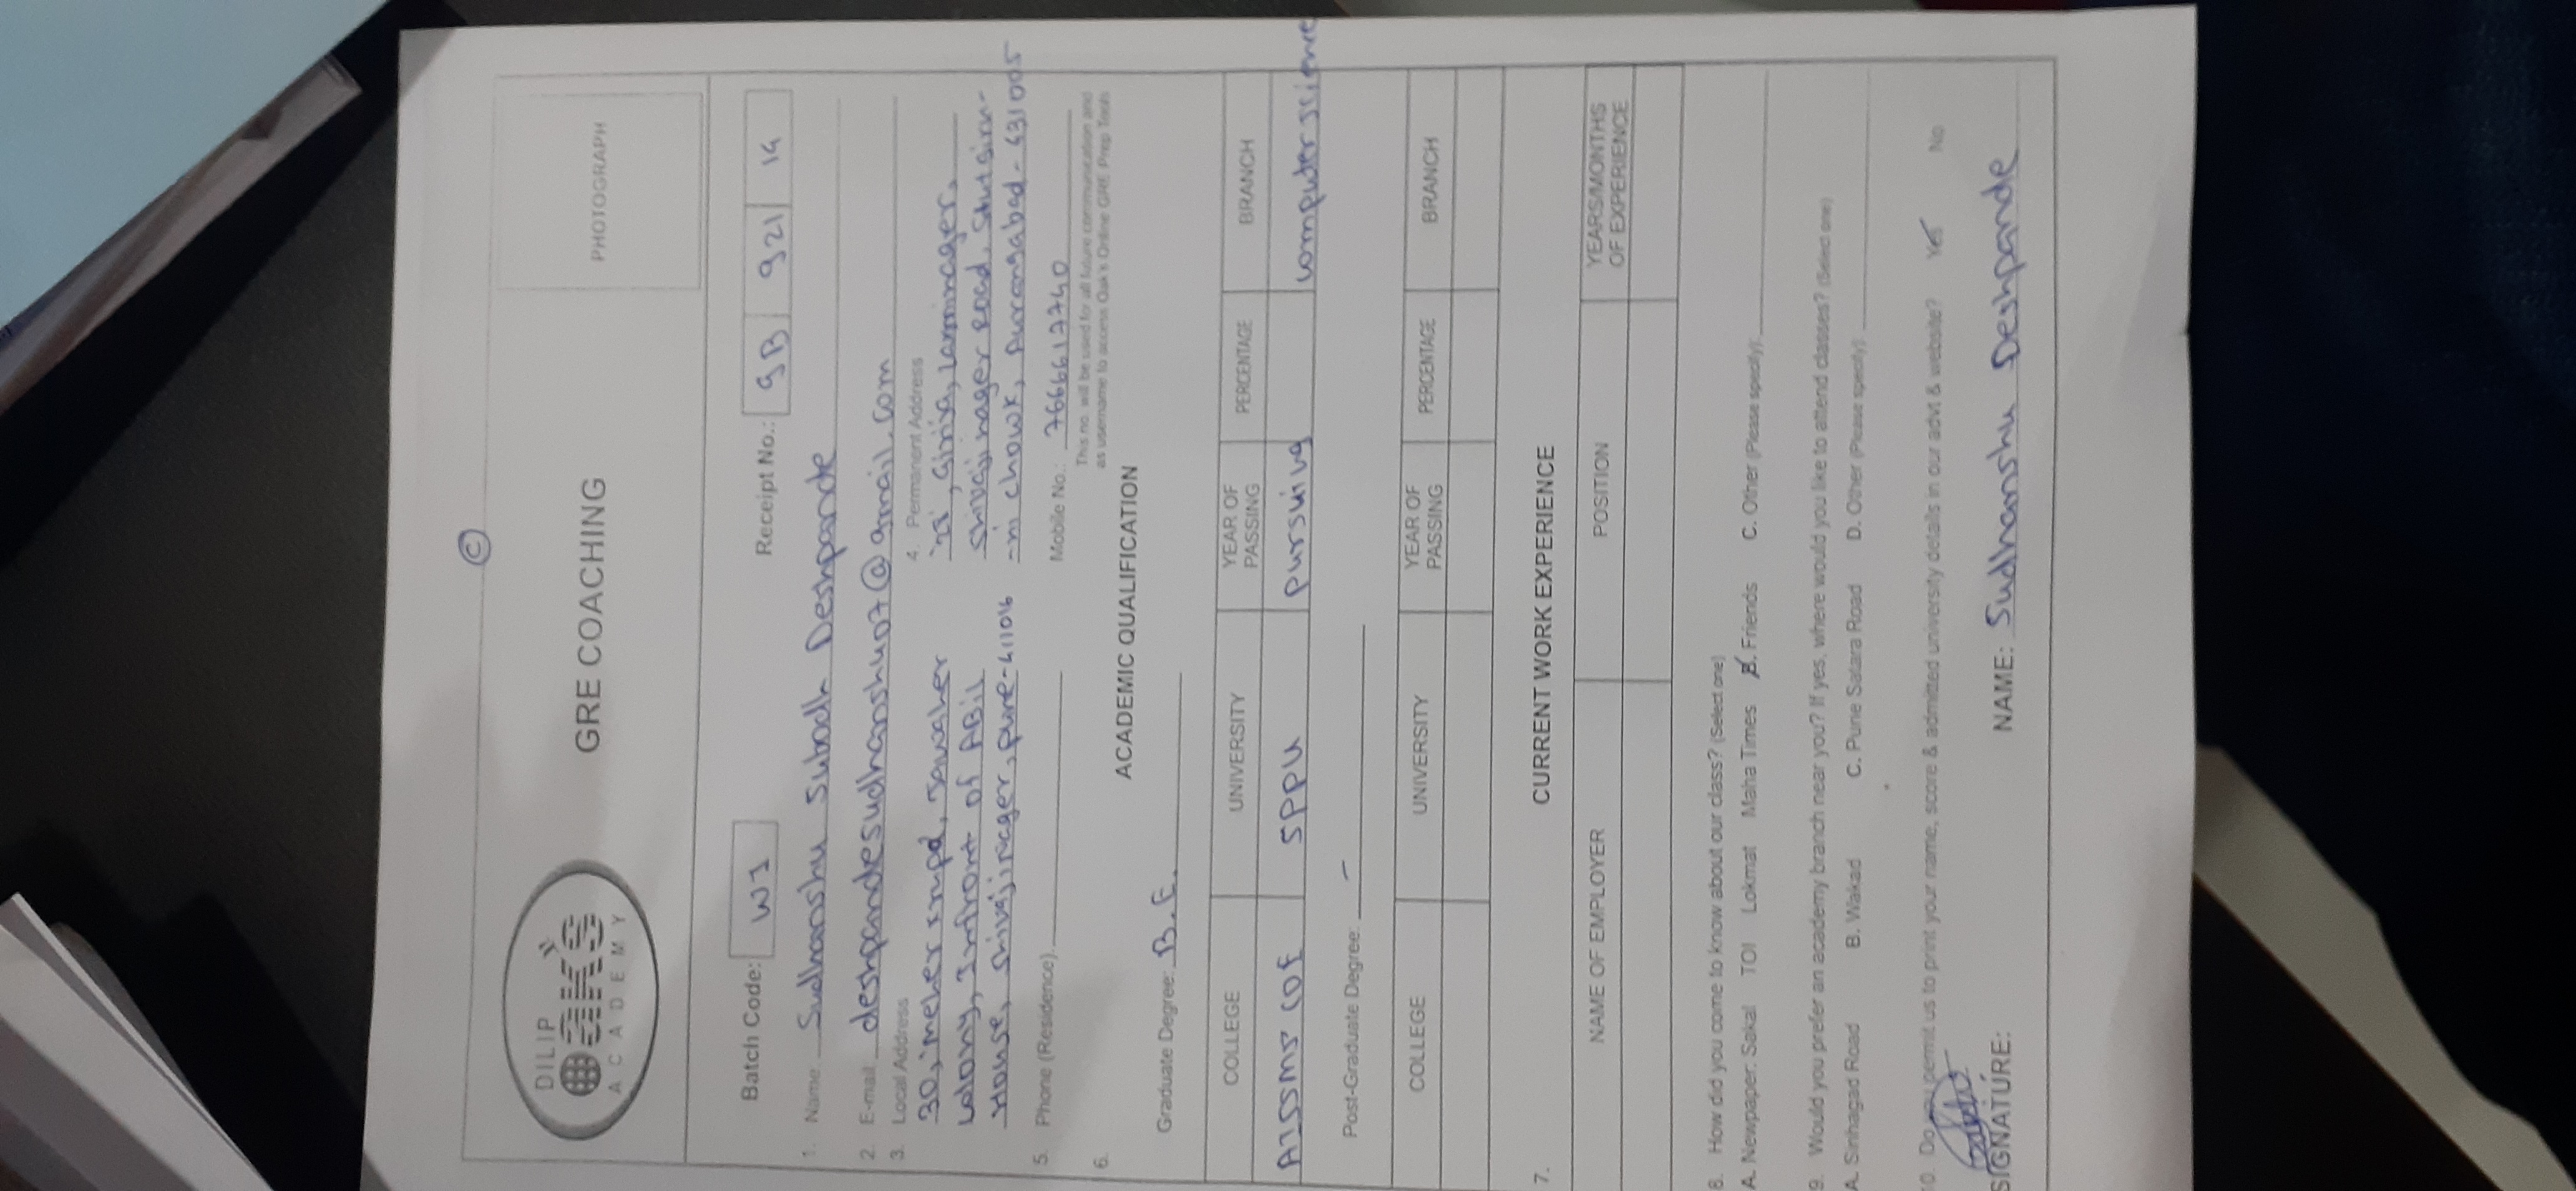 ©
DILIP
OAK'S
ACADEMY
GRE COACHING
PHOTOGRAPH
Batch Code: W1
Receipt No.: 9B 921 14
1. Name Sudhanshu Subodh Deshpande
2. E-mail deshpandesudhanshu07@gmail.com
3. Local Address
4. Permanent Address
30, meher Jawaher
colony, Infront of ABIL
House, Shivajinager, pune-411016
Girija, Laxminager,
Shivajinager Road,
-ni chowk, Aurangabad - 431005
5. Phone (Residence)
Mobile No.: 7666617740
This no. will be used for all future communication and
as username to access Oak's Online GRE Prep Tools
6.
ACADEMIC QUALIFICATION
Graduate Degree: B.E.
COLLEGE UNIVERSITY YEAR OF PASSING PERCENTAGE BRANCH
AISSMS COE SPPU pursuing computer science
Post-Graduate Degree: –
COLLEGE UNIVERSITY YEAR OF PASSING PERCENTAGE BRANCH
7. CURRENT WORK EXPERIENCE
NAME OF EMPLOYER POSITION YEARS/MONTHS OF EXPERIENCE
8. How did you come to know about our class? (Select one)
A. Newpaper: Sakal TOI Lokmat Maha Times B. Friends C. Other (Please specify):
9. Would you prefer an academy branch near you? If yes, where would you like to attend classes? (Select one)
A. Sinhagad Road B. Wakad C. Pune Satara Road D. Other (Please specify):
10. Do you permit us to print your name, score & admitted university details in our advt & website? Yes No
SIGNATURE:
NAME: Sudhanshu Deshpande